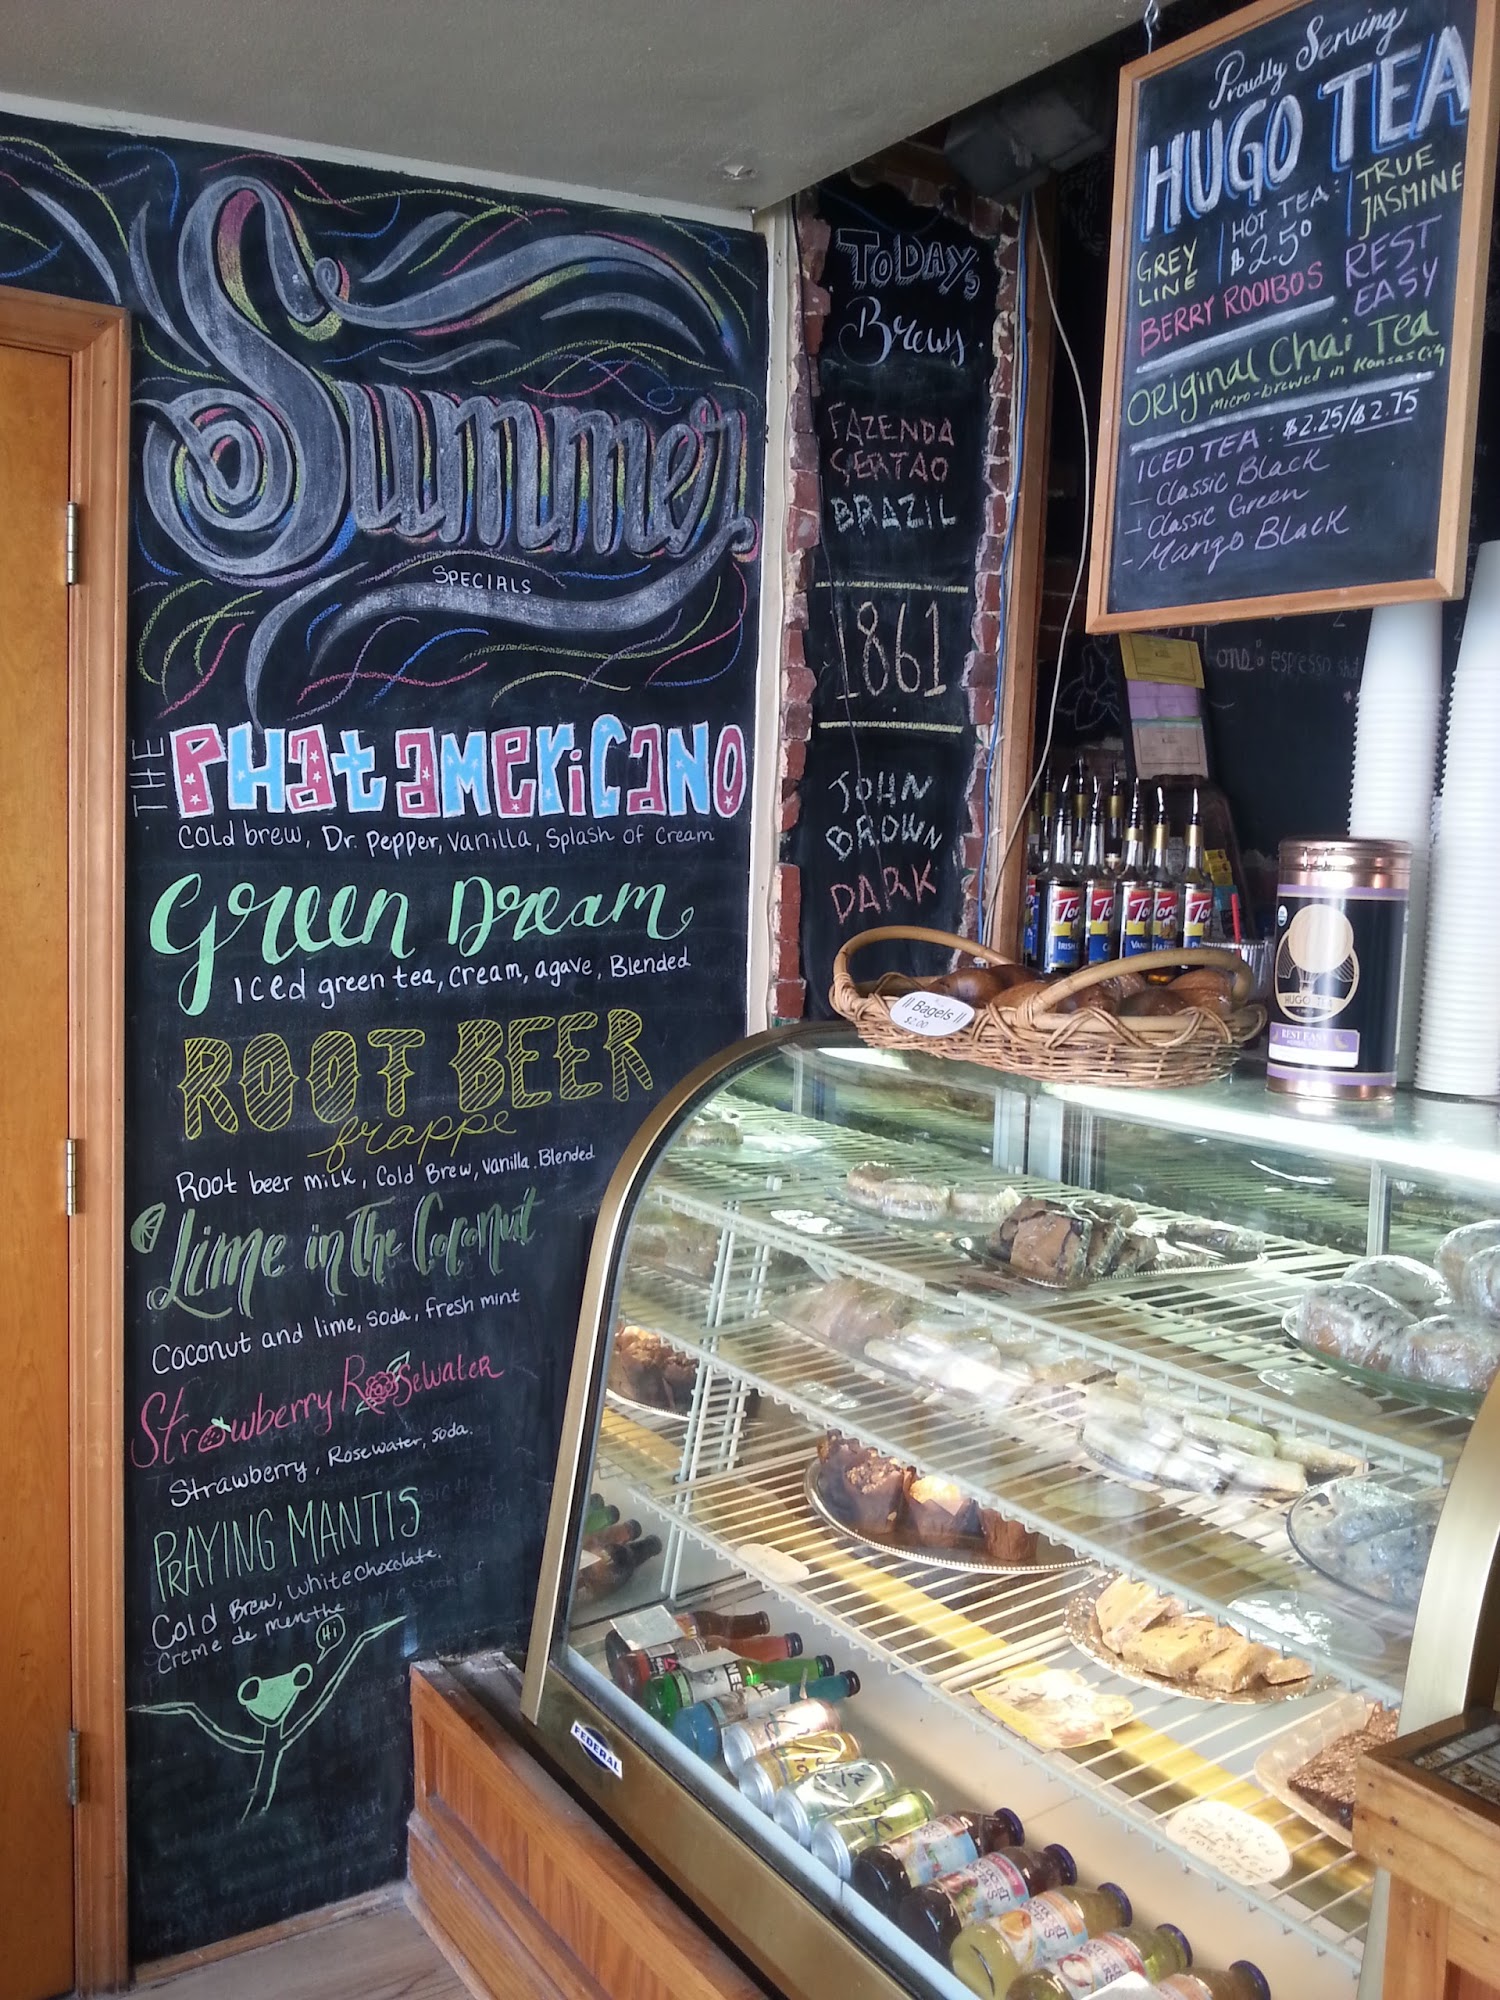 Summer
SPECIALS
THE PHat americano
Cold brew, Dr. pepper, vanilla, Splash of Cream
Green Dream
Iced green tea, cream, agave, Blended
ROOT BEER
frappe
Root beer milk, Cold Brew, vanilla. Blended
Lime in The Coconut
Coconut and lime, soda, fresh mint
Strawberry Rosewater
Strawberry, Rosewater, soda.
PRAYING MANTIS
Cold Brew, White chocolate.
creme de menthe
Hi
TODAYs
Brews.
FAZENDA
SERTAO
BRAZIL
1861
JOHN
BROWN
DARK
Proudly Serving
HUGO TEA
GREY
LINE
HOT TEA:
$2.50
TRUE
JASMINE
BERRY ROOIBOS
REST
EASY
ORiginal Chai Tea
micro-brewed in Kansas City
ICED TEA: $2.25/$2.75
- Classic Black
- Classic Green
- Mango Black
espresso
// Bagels //
$2.00
HUGO TEA
REST EASY
FEDERAL